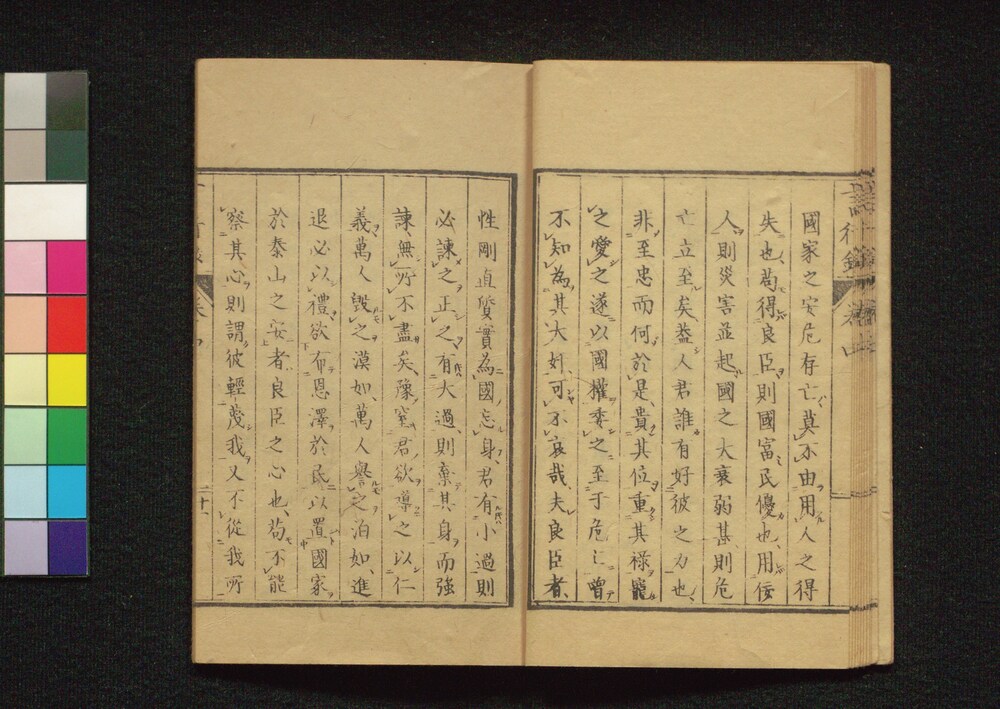 國家之安危存亡莫不由用人之得
失也苟得良臣則國富民優也用佞
人則災害並起國之大衰弱甚則危
亡立至矣蓋人君誰有好彼之力也
非至忠而何於是貴其位重其祿寵
之愛之遂以國權委之至于危亡曽
不知為其大奸可不哀哉夫良臣者
性剛直質實為國忘身君有小過則
必諫之正之有大過則棄其身而強
諫無所不盡矣豫窒君欲導之以仁
義萬人毀之漠如萬人譽之泊如進
退必以禮欲布恩澤於民以置國家
於泰山之安者良臣之心也苟不能
察其心則謂彼輕蔑我又不從我所